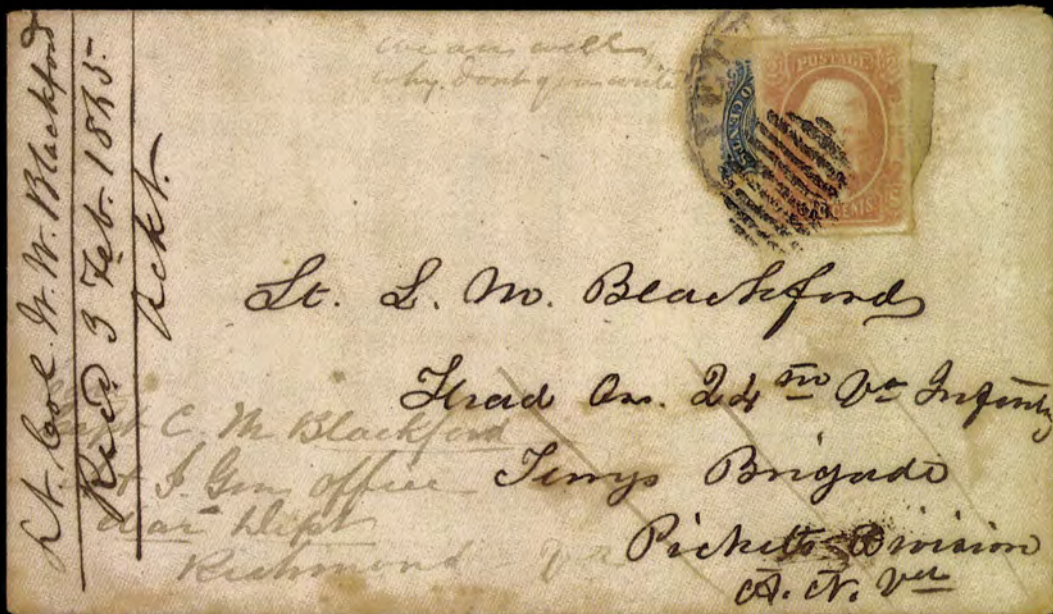 Lt. Col. W. W. Blackford
Recd. 3 Feb. 1865.
Ackt.
we are well
why dont you write
POSTAGE
CENTS
O CENTS
Lt. L. M. Blackford
Head Qrs. 24 Va Infantry
Terrys Brigade
Picketts Division
A. N. Va
Capt C. M. Blackford
Office
War Dept
Richmond Va